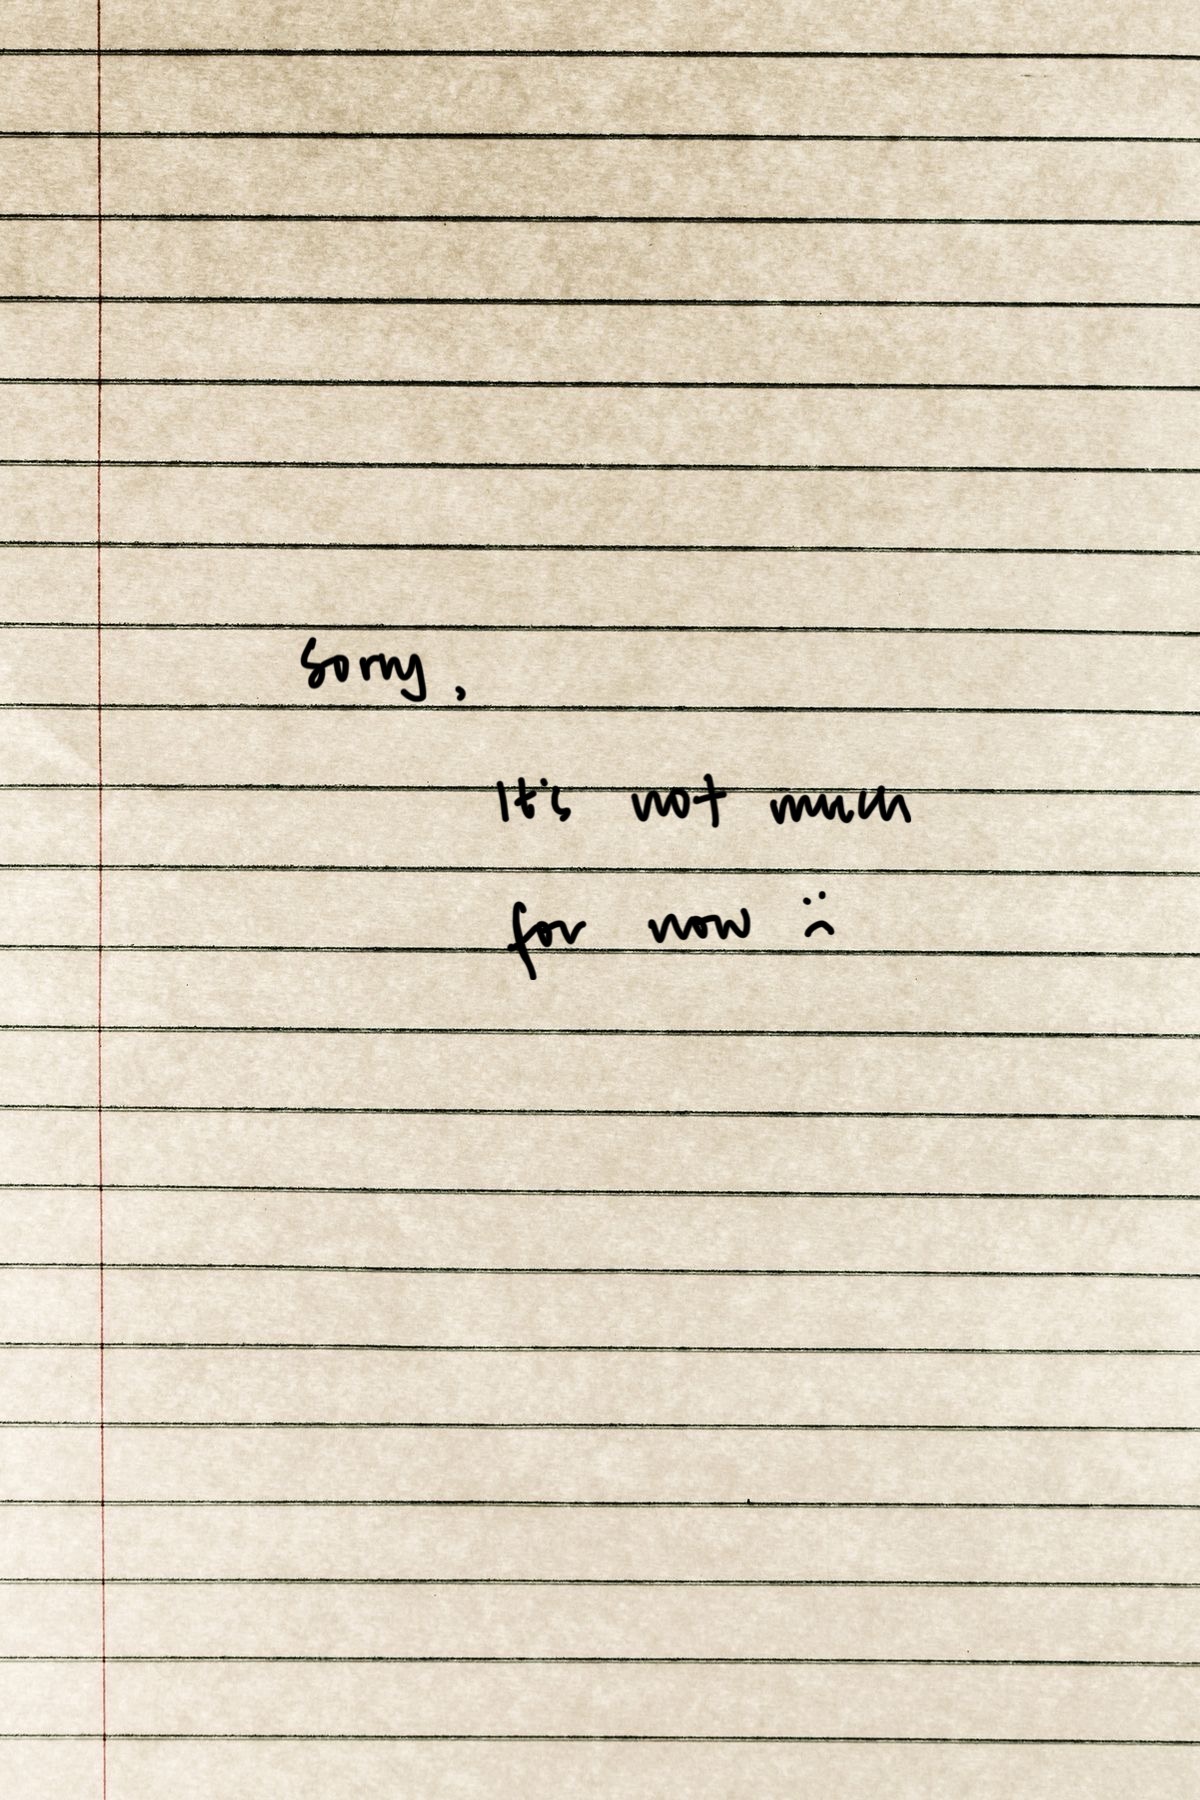 Sorry,
It's not much
for now :(